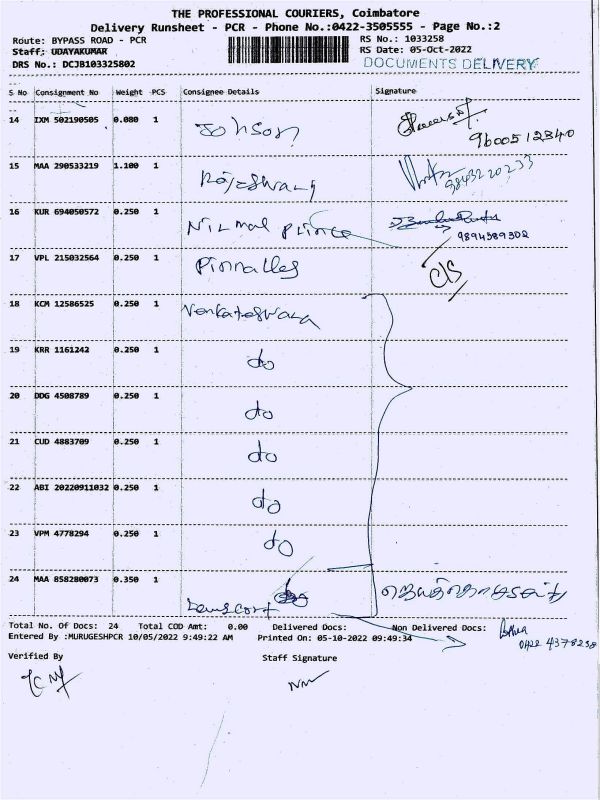 THE PROFESSIONAL COURIERS, Coimbatore
Delivery Runsheet - PCR - Phone No.:0422-3505555 - Page No.:2
Route: BYPASS ROAD - PCR
RS No.: 1033258
Staff: UDAYAKUMAR
RS Date: 05-Oct-2022
DRS No.: DCJB103325802
DOCUMENTS DELIVERY
S No Consignment No Weight PCS Consignee Details Signature
14 IXM 502190505 0.080 1 Johnson 9600512340
15 MAA 290533219 1.100 1 Rajeswari 9843220233
16 KUR 694050572 0.250 1 Nirmal Prince 9894389302
17 VPL 215032564 0.250 1 C/S
18 KCM 12586525 0.250 1 Venkateswara
19 KRR 1161242 0.250 1 do
20 DDG 4508789 0.250 1 do
21 CUD 4883709 0.250 1 do
22 ABI 20220911032 0.250 1 do
23 VPM 4778294 0.250 1 do
24 MAA 858280073 0.350 1
Total No. Of Docs: 24 Total COD Amt: 0.00 Delivered Docs: Non Delivered Docs:
0422 4378238
Entered By :MURUGESHPCR 10/05/2022 9:49:22 AM Printed On: 05-10-2022 09:49:34
Verified By Staff Signature